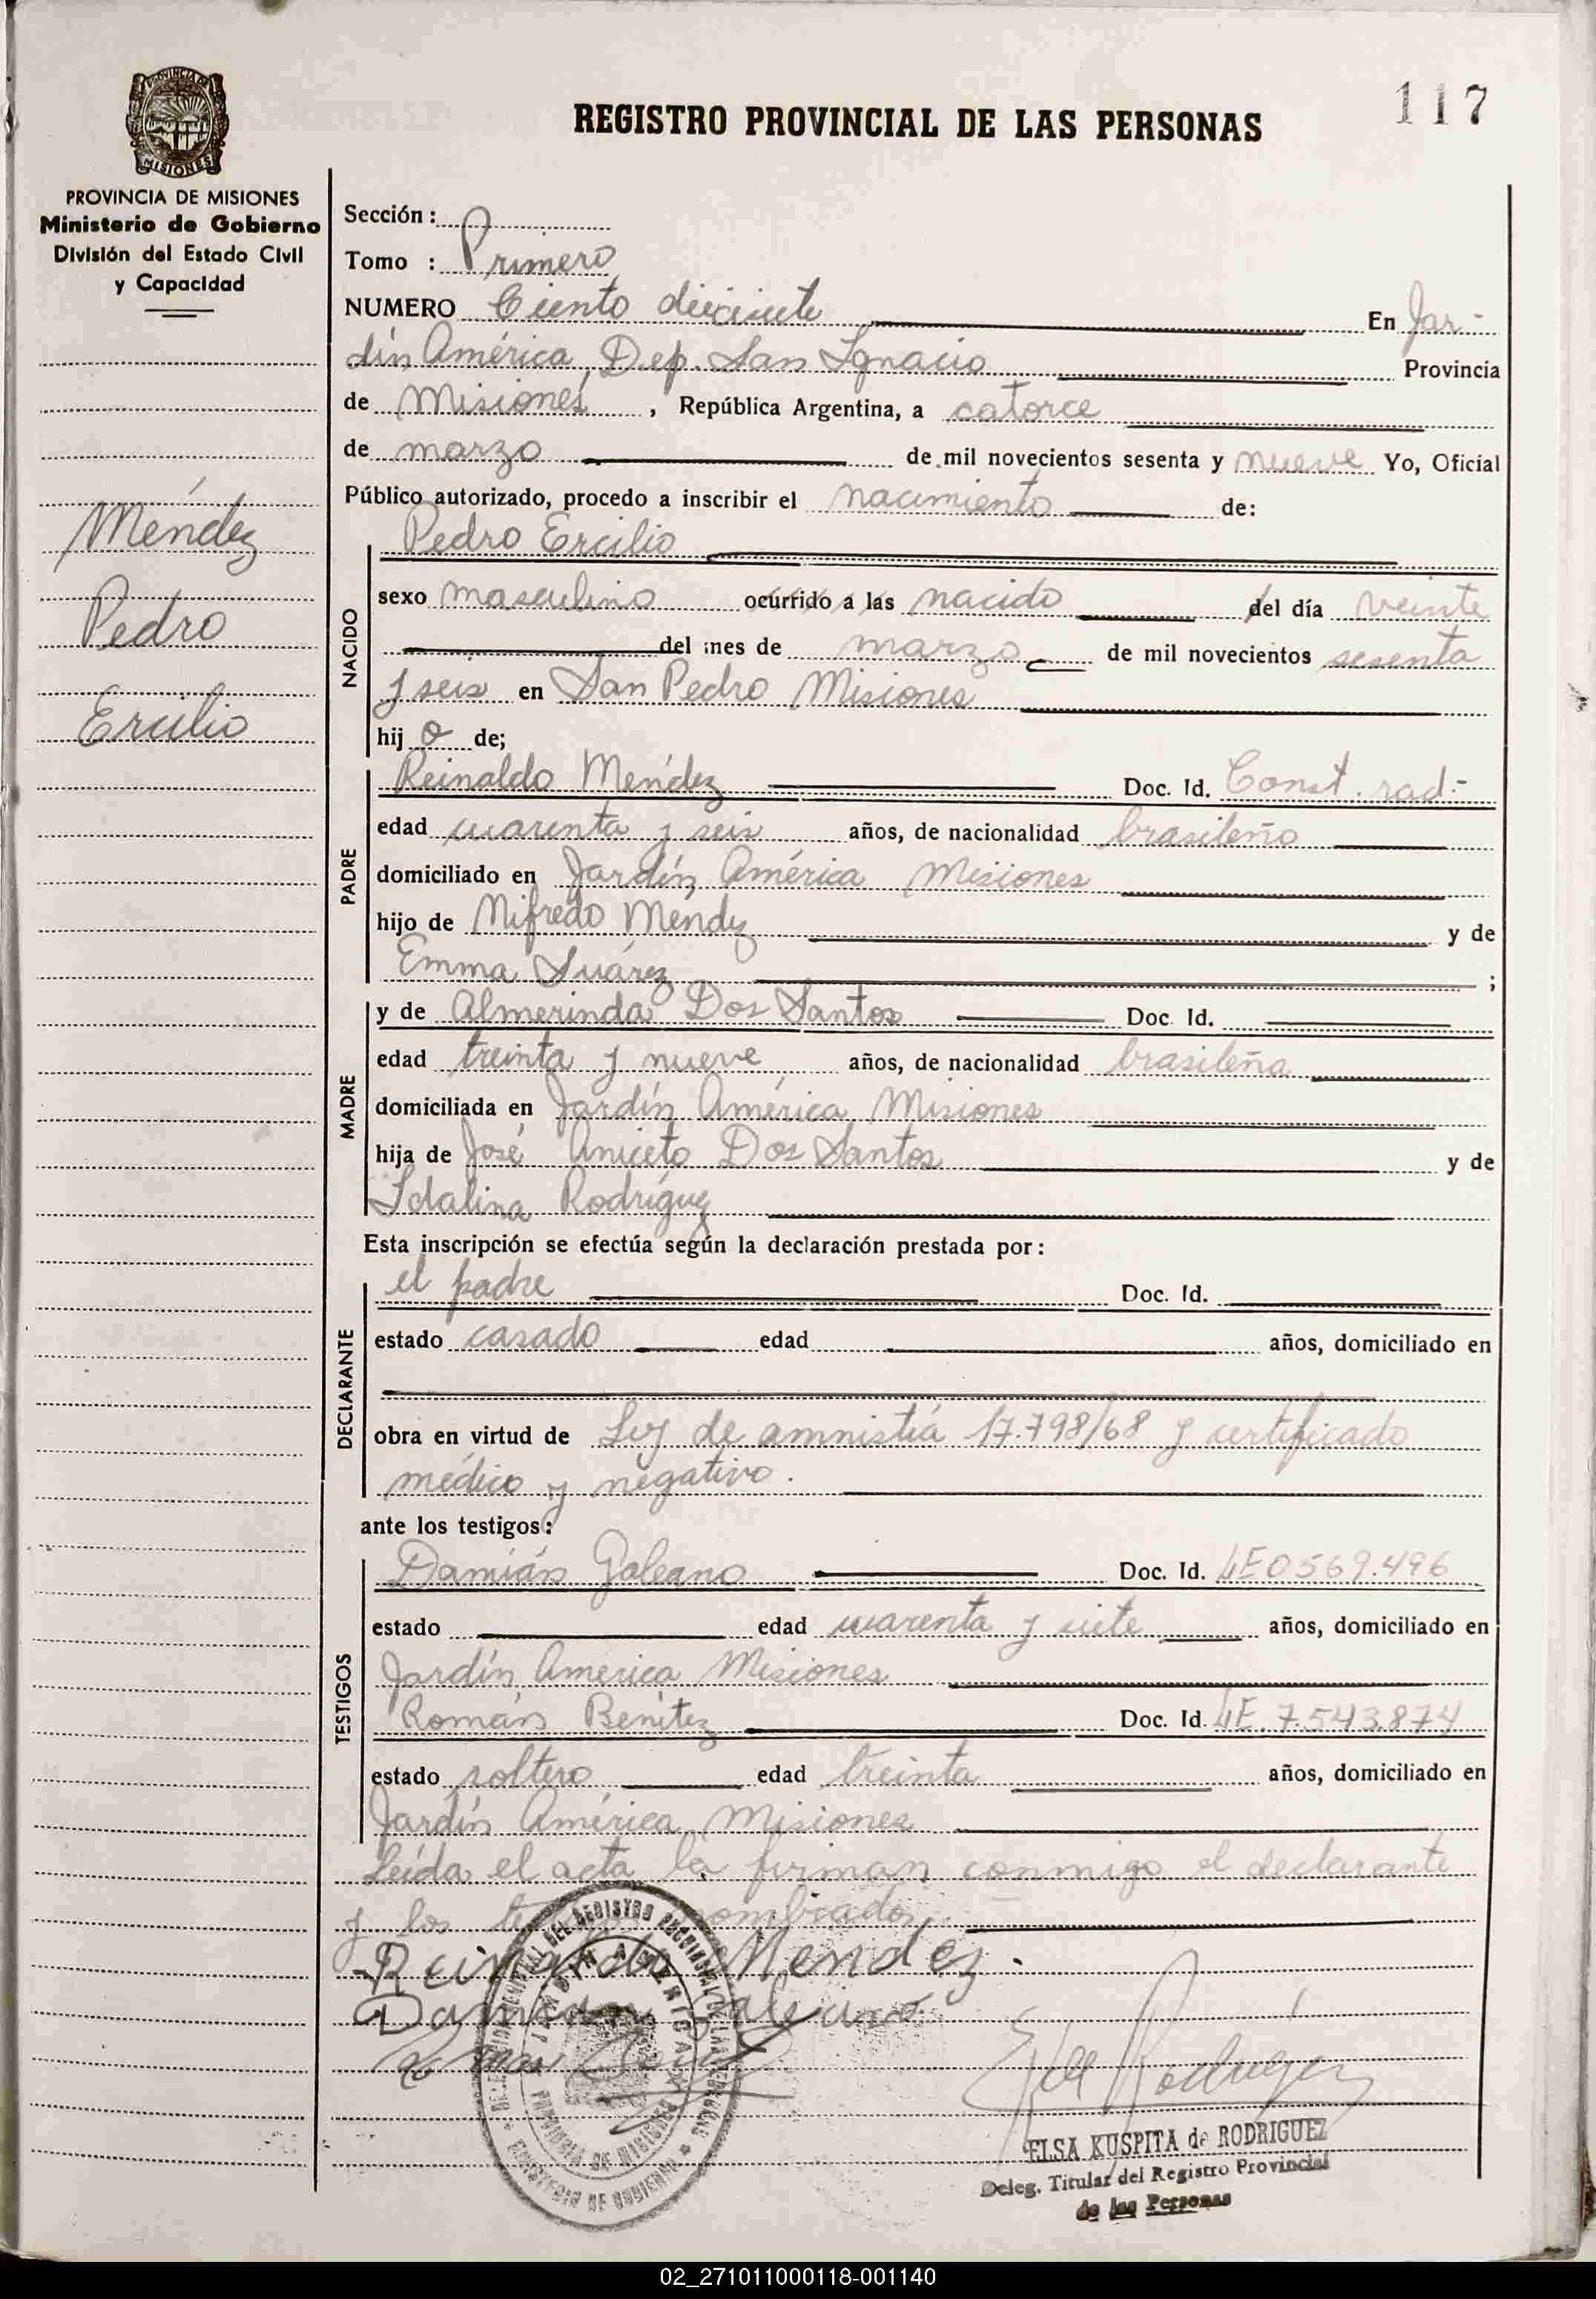 117
REGISTRO PROVINCIAL DE LAS PERSONAS
PROVINCIA DE MISIONES
Ministerio de Gobierno
División del Estado Civil
y Capacidad
Méndez
Pedro
Ercilio
Sección:
Tomo : Primero
NUMERO Ciento diecisiete En Jar-
dín América, Dep. San Ignacio Provincia
de Misiones, República Argentina, a catorce
de marzo de mil novecientos sesenta y nueve Yo, Oficial
Público autorizado, procedo a inscribir el nacimiento de:
Pedro Ercilio
NACIDO
sexo masculino ocurrido a las nacido del día veinte
del mes de marzo de mil novecientos sesenta
y seis en San Pedro Misiones
hijo de;
PADRE
Reinaldo Méndez Doc. Id. Const. rad.-
edad cuarenta y seis años, de nacionalidad brasileño
domiciliado en Jardín América Misiones
hijo de Nifredo Méndez y de
Emma Suárez ;
MADRE
y de Almerinda Dos Santos Doc. Id.
edad treinta y nueve años, de nacionalidad brasileña
domiciliada en Jardín América Misiones
hija de José Aniceto Dos Santos y de
Idalina Rodríguez
Esta inscripción se efectúa según la declaración prestada por:
DECLARANTE
el padre Doc. Id.
estado casado edad años, domiciliado en
obra en virtud de Ley de amnistía 17.798/68 y certificado
médico y negativo.
ante los testigos:
TESTIGOS
Damián Galeano Doc. Id. LE 0569.496
estado edad cuarenta y siete años, domiciliado en
Jardín América Misiones
Román Benítez Doc. Id. LE. 7.543.874
estado soltero edad treinta años, domiciliado en
Jardín América Misiones
Leída el acta la firman conmigo el declarante
y los nombrados.
Reinaldo Mendez.
Damian Galeano
ELSA KUSPITA de RODRIGUEZ
Deleg. Titular del Registro Provincial
de las Personas
JARDIN AMERICA
PROVINCIA DE MISIONES
MINISTERIO DE GOBIERNO
02_271011000118-001140